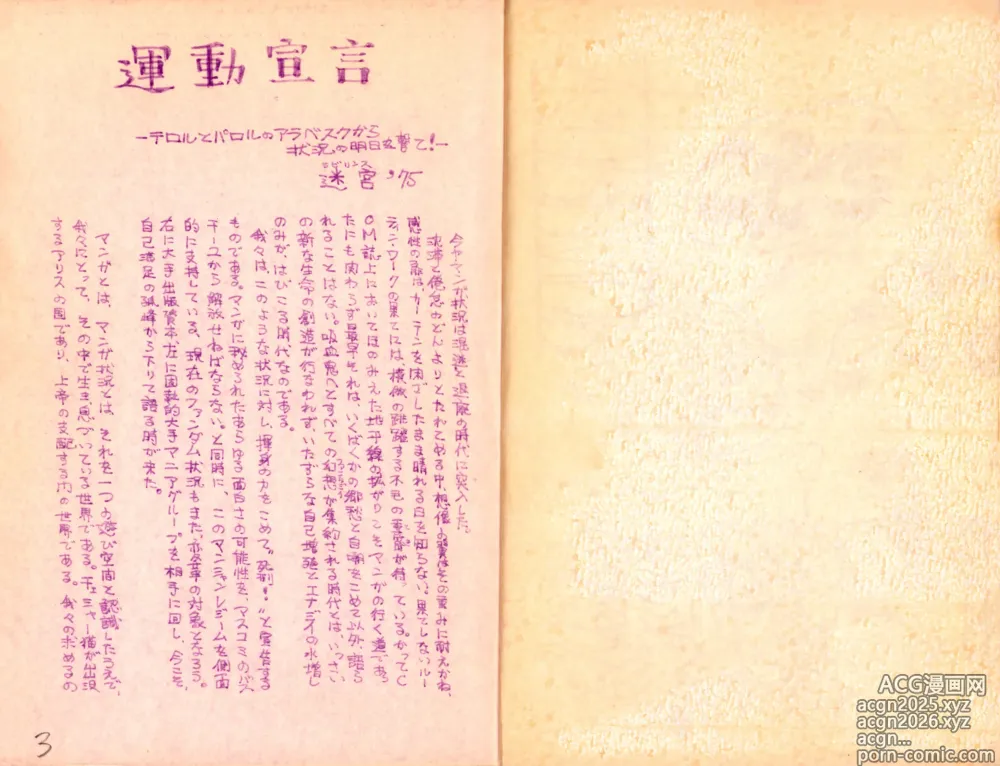 運動宣言
―テロルとパロルのアラベスクから
状況の明日を撃て!―
ラビリンス
迷宮 '75
今や、マンガ状況は混迷と退廃の時代に突入した。
沈滞と倦怠のどんよりとたれこめる中、想像の翼はその重みに耐えかね、
感性の扉は、カーテンを閉ざしたまま晴れる日を知らない。果てしないルー
ティン・ワークの果てには、模倣の跳躍する不毛の
荒野が待っている。かってC
OM誌上においてほのみえた地平線の拡がりこそマンガの行く道であっ
たにも関わらず最早それは、いくばくかの郷愁と自嘲をこめて以外、語ら
れることはない。吸血鬼へとすべての幻想が集約される時代とは、いっさい
の新な生命の創造が行なわれず、いたずらな自己増殖とエナジィの水増し
のみが、はびこる時代なのである。
我々は、このような状況に対し、渾身の力をこめて〝死刑!〟と宣告する
ものである。マンガに秘められたあらゆる面白さの可能性を、マスコミのパス
チーユから解放せねばならないと同時に、このマンネリズムを側面
的に支持している、現在のファンダム状況もまた、変革の対象となろう。
右に大手出版資本、左に回転的大手マニアグループを相手に回し、今こそ、
自己満足の孤峰から下りて語る時が来た。
マンガとは、マンガ状況とは、それを一つの遊び空間と認識したうえで、
我々にとって、その中で生き、息づいている世界である。チェシャー猫が出没
するアリスの国であり、上帝の支配する内の世界である。我々の求めるの
3
ACG漫画网
acgn2025.xyz
acgn2026.xyz
acgn...
porn-comic.com